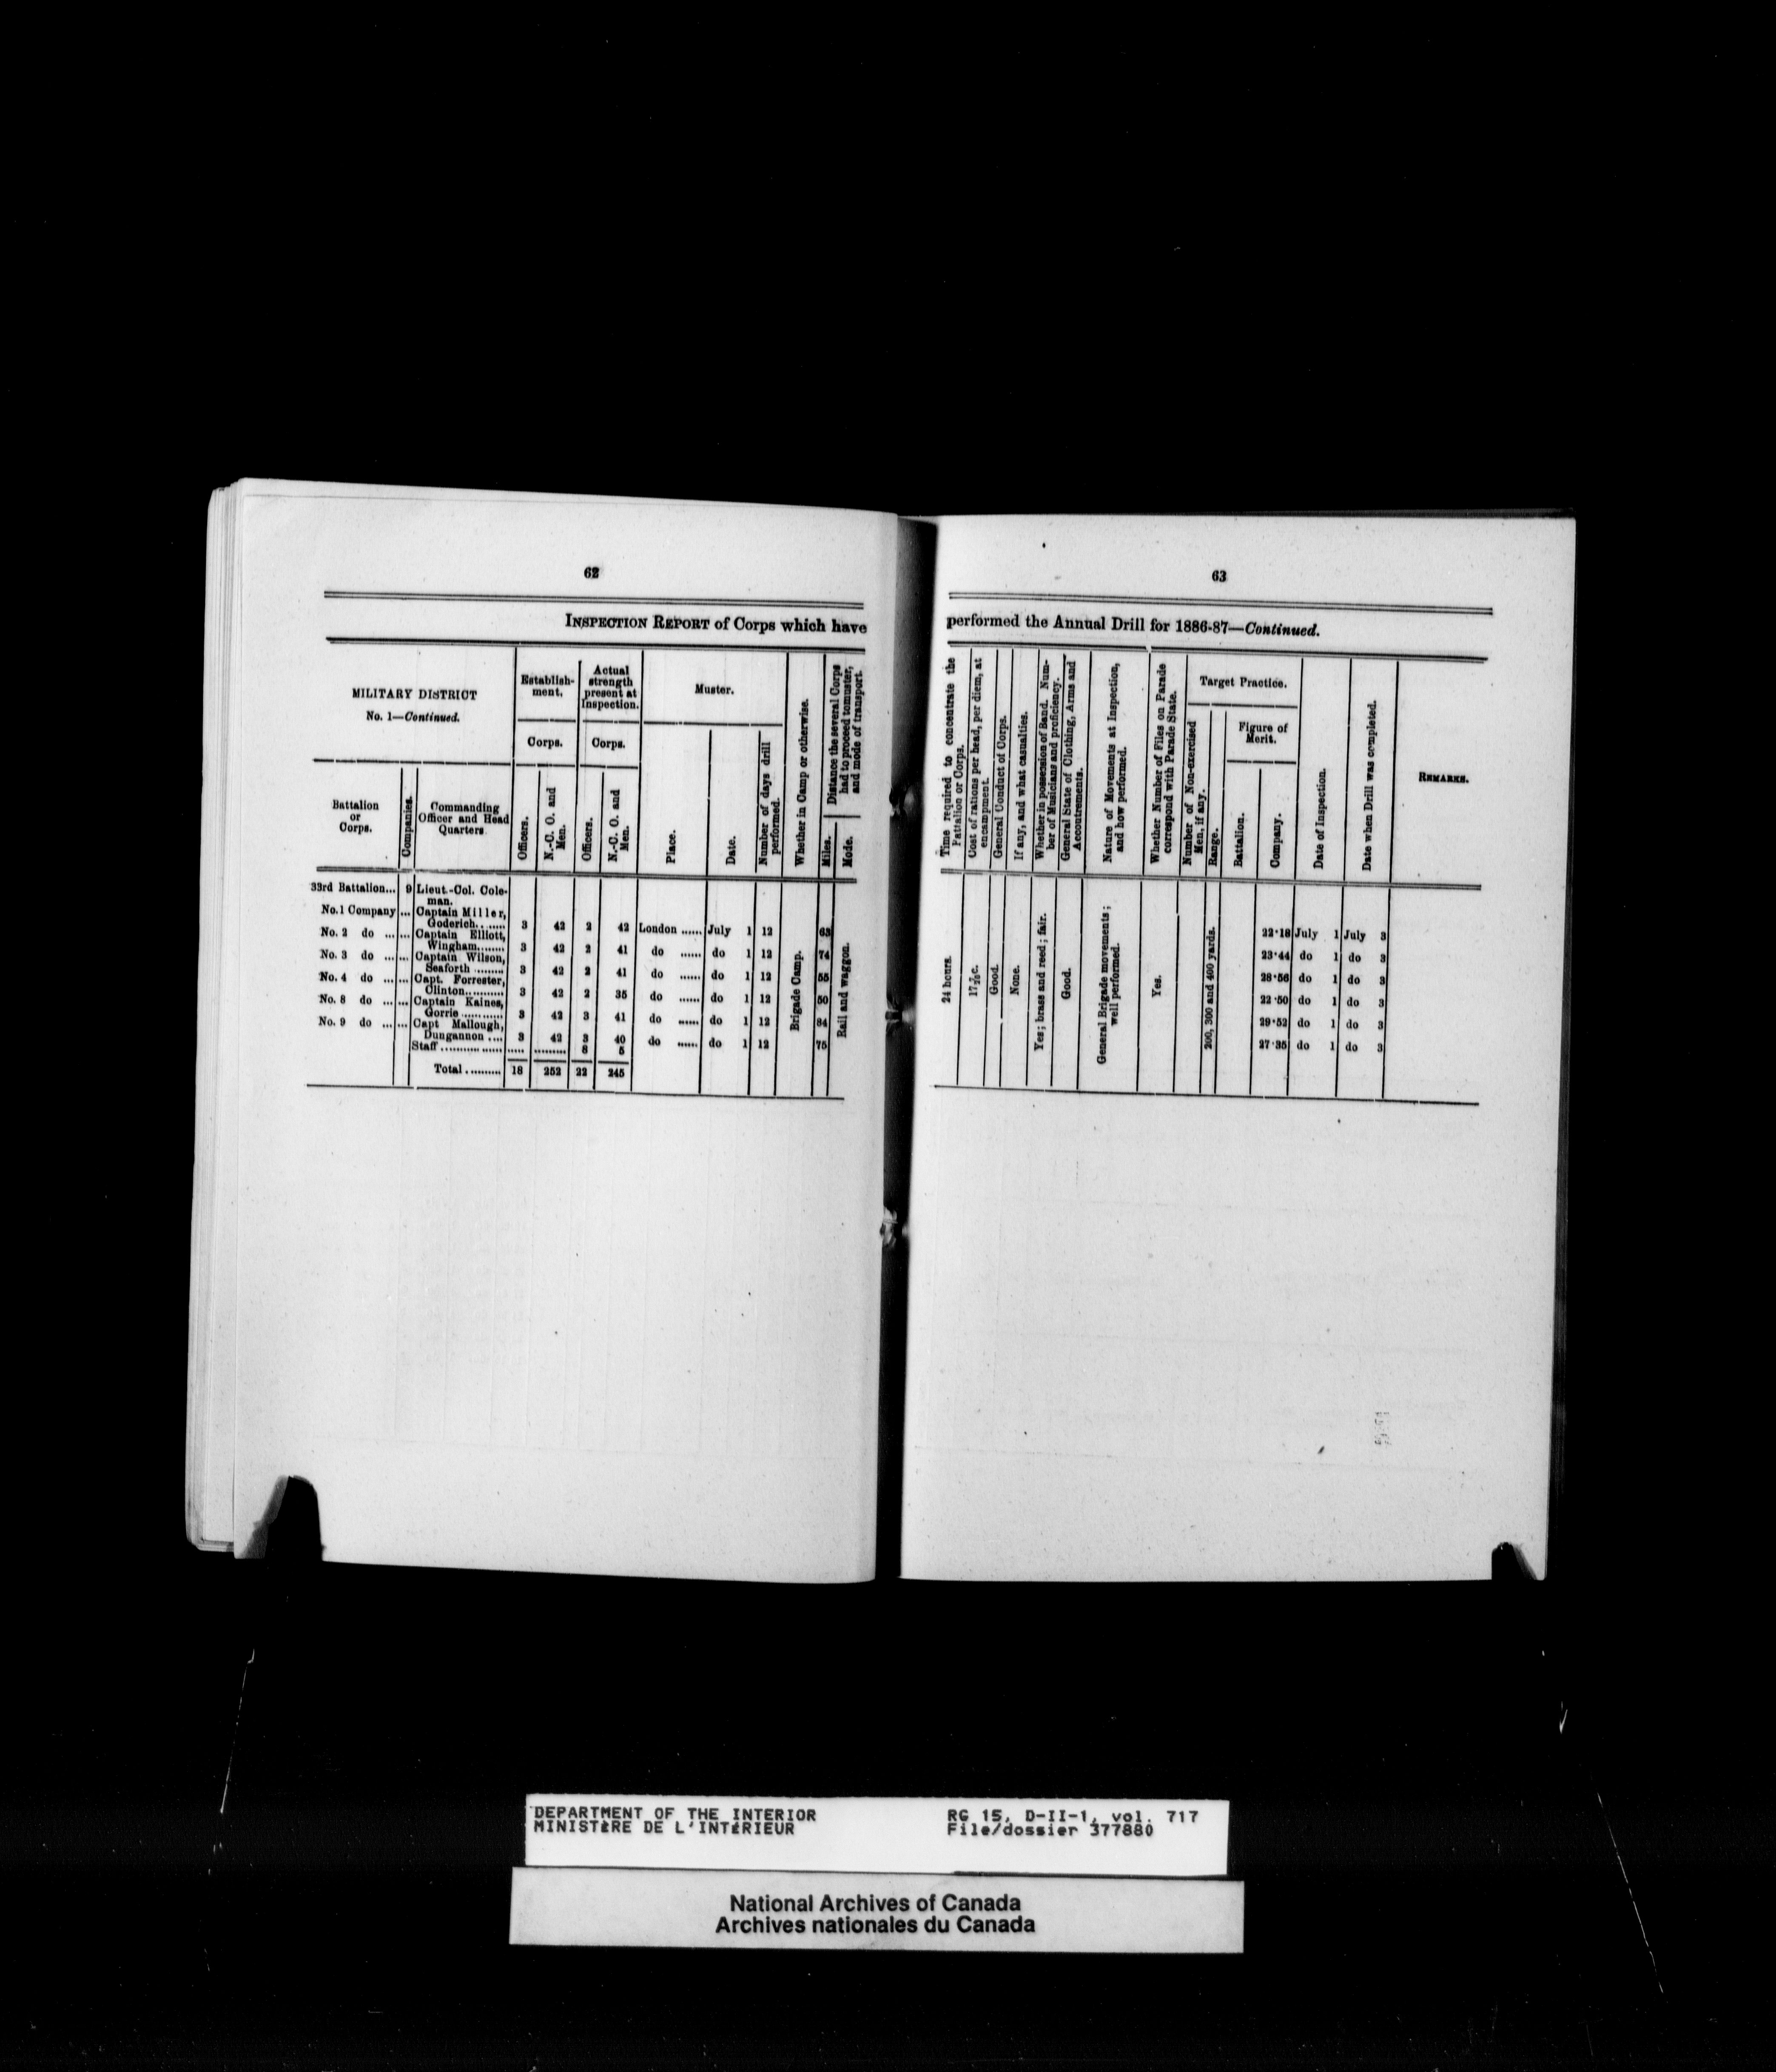 62
INSPECTION REPORT of Corps which have
MILITARY DISTRICT
No. 1—Continued.
Establish-
ment.
Actual
strength
present at
Inspection.
Muster.
Whether in Camp or otherwise.
Distance the several Corps
had to proceed to muster,
and mode of transport.
Corps.
Corps.
Battalion
or
Corps.
Companies.
Commanding
Officer and Head
Quarters
Officers.
N.-C. O. and
Men.
Officers.
N.-C. O. and
Men.
Place.
Date.
Number of days drill
performed.
Miles.
Mode.
33rd Battalion... 9 Lieut.-Col. Cole-
man.
No.1 Company ... Captain Miller,
Goderich........ 3 42 2 42 London ...... July 1 12 63
No. 2 do ... ... Captain Elliott,
Wingham........ 3 42 2 41 do ...... do 1 12 74
No. 3 do ... ... Captain Wilson,
Seaforth ......... 3 42 2 41 do ...... do 1 12 55
No. 4 do ... ... Capt. Forrester,
Clinton........... 3 42 2 35 do ...... do 1 12 50
No. 8 do ... ... Captain Kaines,
Gorrie ............ 3 42 3 41 do ...... do 1 12 84
No. 9 do ... ... Capt Mallough,
Dungannon .... 3 42 3 40 do ...... do 1 12 75
Staff .................. ..... ......... 8 5
Total .......... 18 252 22 245
Brigade Camp.
Rail and waggon.
63
performed the Annual Drill for 1886-87—Continued.
Time required to concentrate the
Battalion or Corps.
Cost of rations per head, per diem, at
encampment.
General Conduct of Corps.
If any, and what casualties.
Whether in possession of Band. Num-
ber of Musicians and proficiency.
General State of Clothing, Arms and
Accoutrements.
Nature of Movements at Inspection,
and how performed.
Whether Number of Files on Parade
correspond with Parade State.
Number of Non-exercised
Men, if any.
Target Practice.
Range.
Figure of
Merit.
Battalion.
Company.
Date of Inspection.
Date when Drill was completed.
REMARKS.
24 hours.
Good.
None.
Yes; brass and reed; fair.
Good.
General Brigade movements;
well performed.
Yes.
200, 300 and 400 yards.
22·18 July 1 July 3
23·44 do 1 do 3
28·56 do 1 do 3
22·50 do 1 do 3
29·52 do 1 do 3
27·35 do 1 do 3
DEPARTMENT OF THE INTERIOR
MINISTÈRE DE L'INTÉRIEUR
RG 15, D-II-1, vol. 717
File/dossier 377880
National Archives of Canada
Archives nationales du Canada